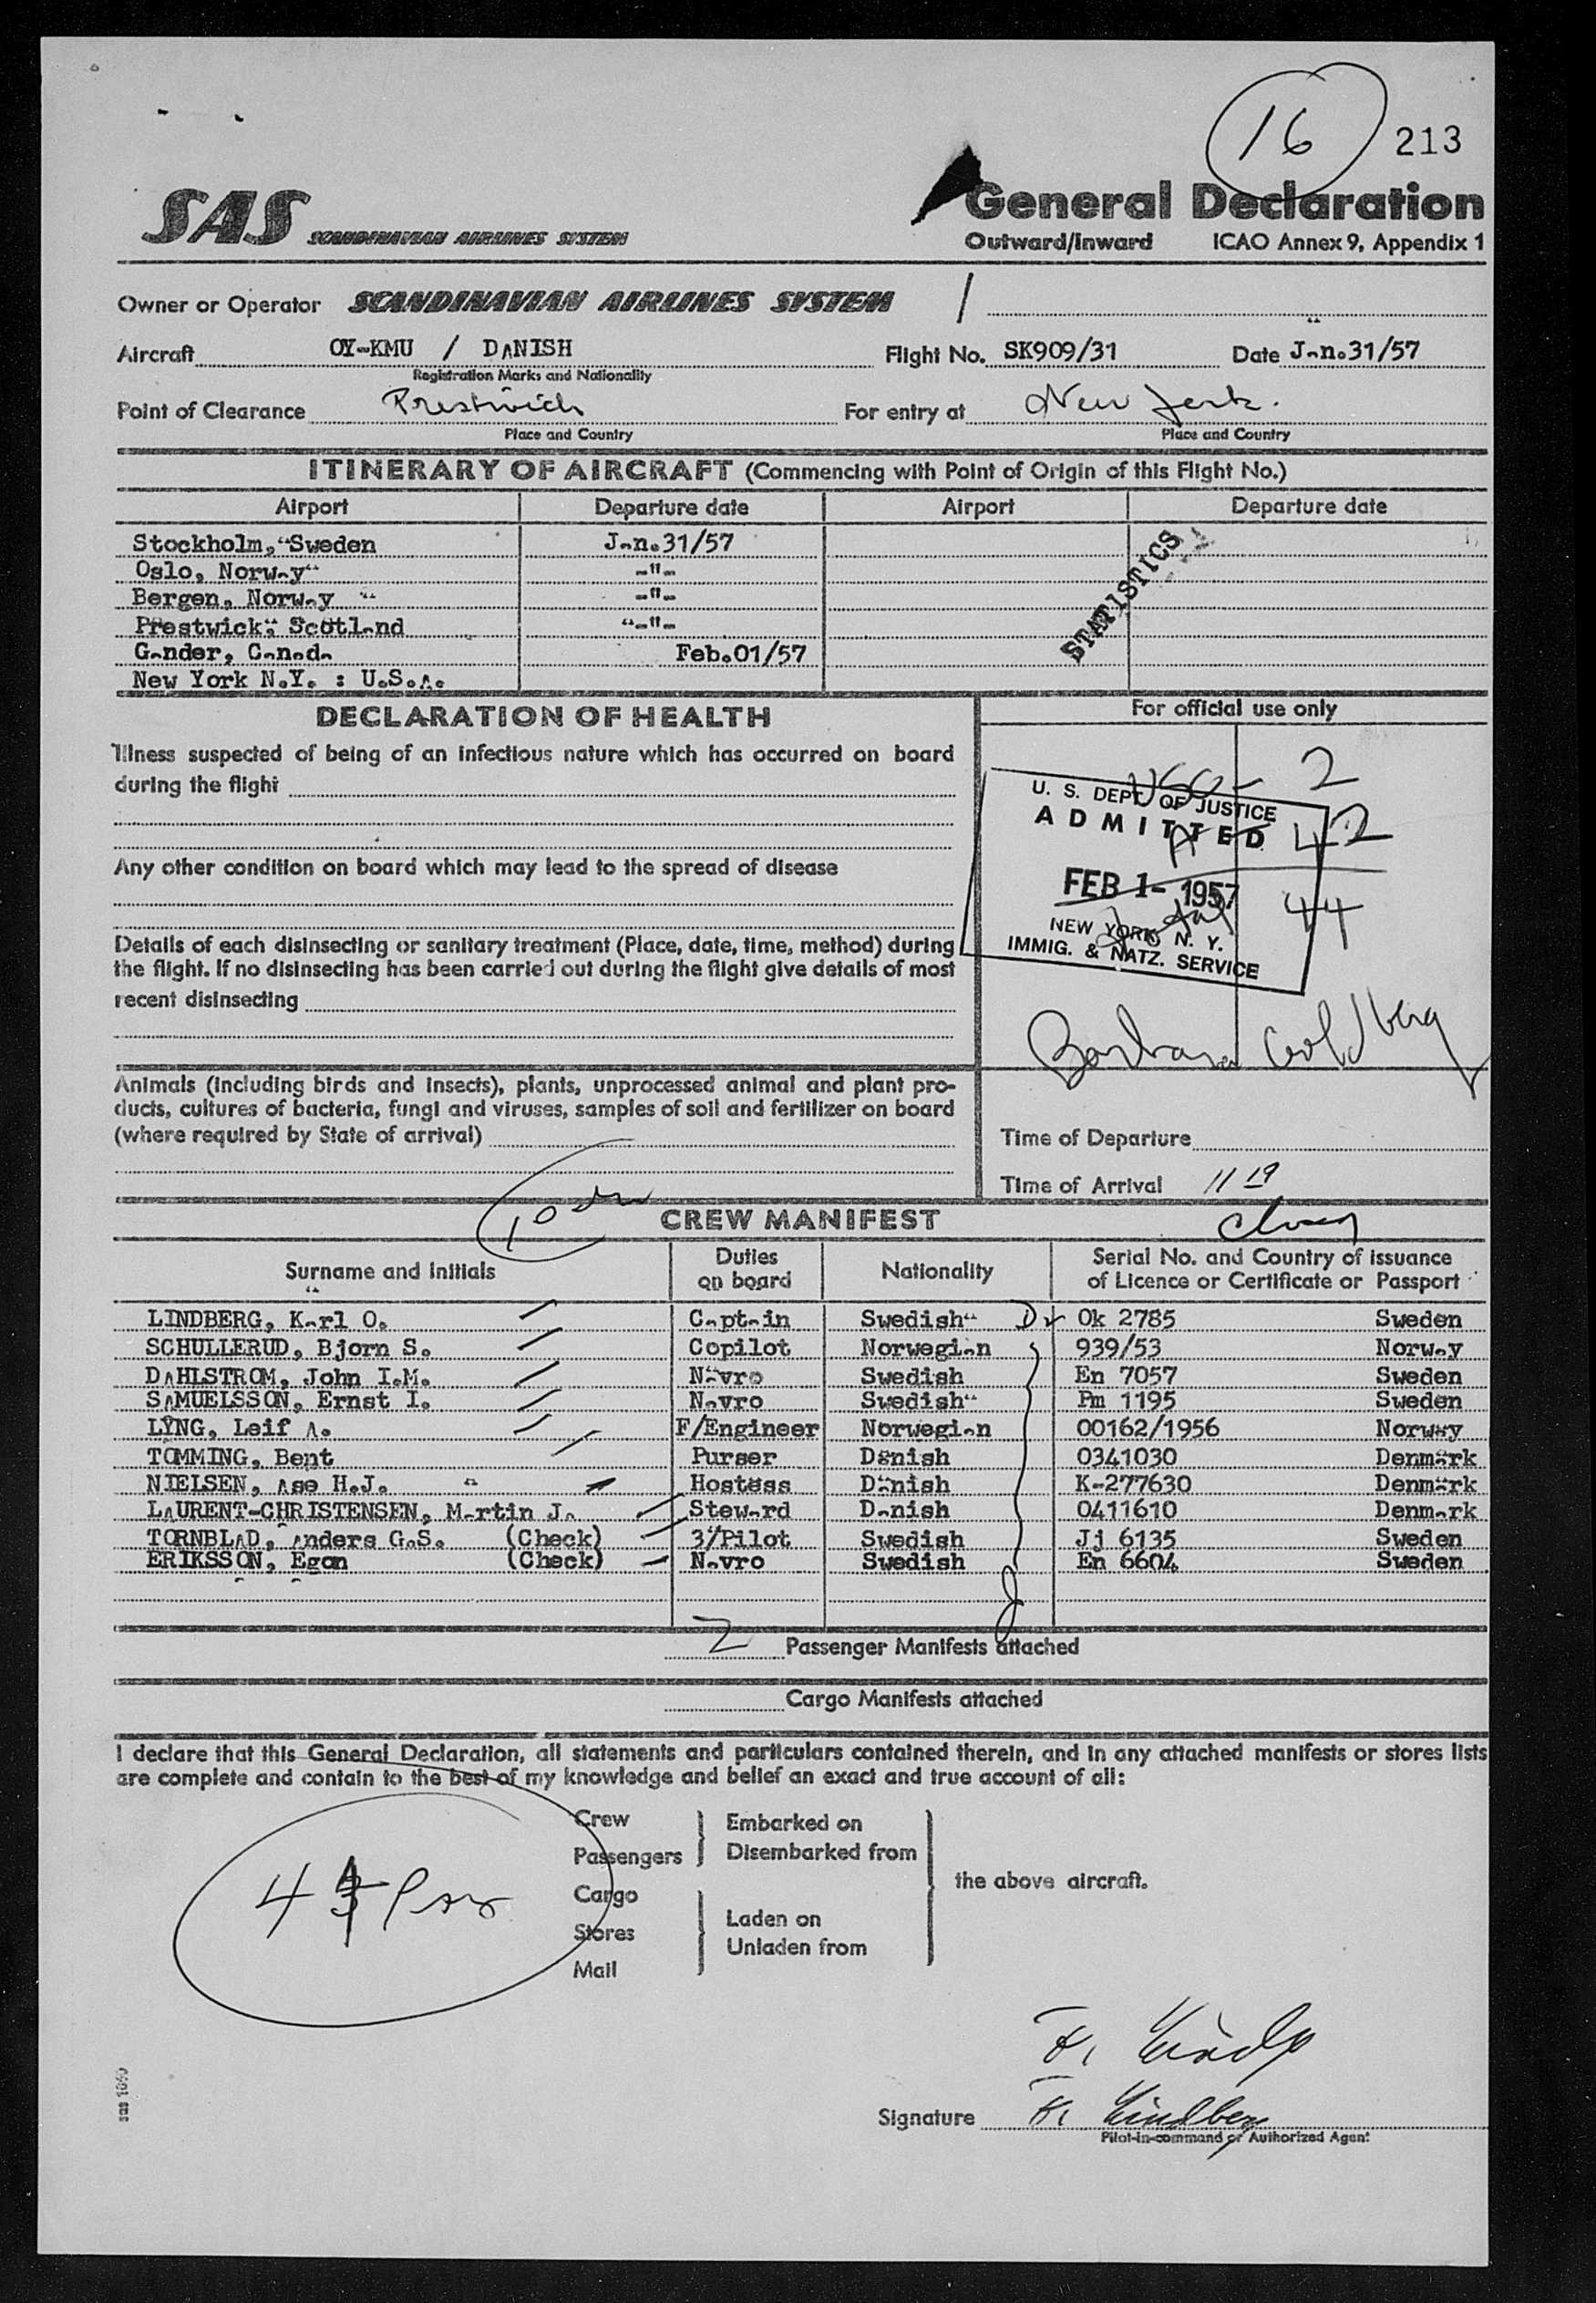 16 213
SAS SCANDINAVIAN AIRLINES SYSTEM
General Declaration
Outward/Inward ICAO Annex 9, Appendix 1
Owner or Operator SCANDINAVIAN AIRLINES SYSTEM /
Aircraft OY-KMU / DANISH Flight No. SK909/31 Date Jan.31/57
Registration Marks and Nationality
Point of Clearance Prestwick For entry at New York.
Place and Country Place and Country
ITINERARY OF AIRCRAFT (Commencing with Point of Origin of this Flight No.)
Airport Departure date Airport Departure date
Stockholm, Sweden Jan.31/57
Oslo, Norway -"-
Bergen, Norway -"-
Prestwick, Scotland -"-
Gander, Canada Feb.01/57
New York N.Y. : U.S.A.
STATISTICS
DECLARATION OF HEALTH
Illness suspected of being of an infectious nature which has occurred on board
during the flight
Any other condition on board which may lead to the spread of disease
Details of each disinsecting or sanitary treatment (Place, date, time, method) during
the flight. If no disinsecting has been carried out during the flight give details of most
recent disinsecting
Animals (including birds and insects), plants, unprocessed animal and plant pro-
ducts, cultures of bacteria, fungi and viruses, samples of soil and fertilizer on board
(where required by State of arrival)
For official use only
USC - 2
U. S. DEPT. OF JUSTICE
ADMITTED
A 42
FEB 1- 1957
Total 44
NEW YORK, N. Y.
IMMIG. & NATZ. SERVICE
Barbara Goldberg
Time of Departure
Time of Arrival 11 19
10
CREW MANIFEST
Surname and Initials Duties on board Nationality Serial No. and Country of issuance of Licence or Certificate or Passport
LINDBERG, Karl O. Captain Swedish Ok 2785 Sweden
SCHULLERUD, Bjorn S. Copilot Norwegian 939/53 Norway
DAHLSTROM, John I.M. Navro Swedish En 7057 Sweden
SAMUELSSON, Ernst I. Navro Swedish Pm 1195 Sweden
LYNG, Leif A. F/Engineer Norwegian 00162/1956 Norway
TOMMING, Bent Purser Danish 0341030 Denmark
NIELSEN, Ase H.J. Hostess Danish K-277630 Denmark
LAURENT-CHRISTENSEN, Martin J. Steward Danish 0411610 Denmark
TORNBLAD, Anders G.S. (Check) 3/Pilot Swedish Jj 6135 Sweden
ERIKSSON, Egon (Check) Navro Swedish En 6604 Sweden
2 Passenger Manifests attached
Cargo Manifests attached
I declare that this General Declaration, all statements and particulars contained therein, and in any attached manifests or stores lists
are complete and contain to the best of my knowledge and belief an exact and true account of all:
Crew
Passengers
Embarked on
Disembarked from
Cargo
Stores
Mail
Laden on
Unladen from
the above aircraft.
44 Pax
sas 1040
Signature K. Lindberg
Pilot-in-command or Authorized Agent